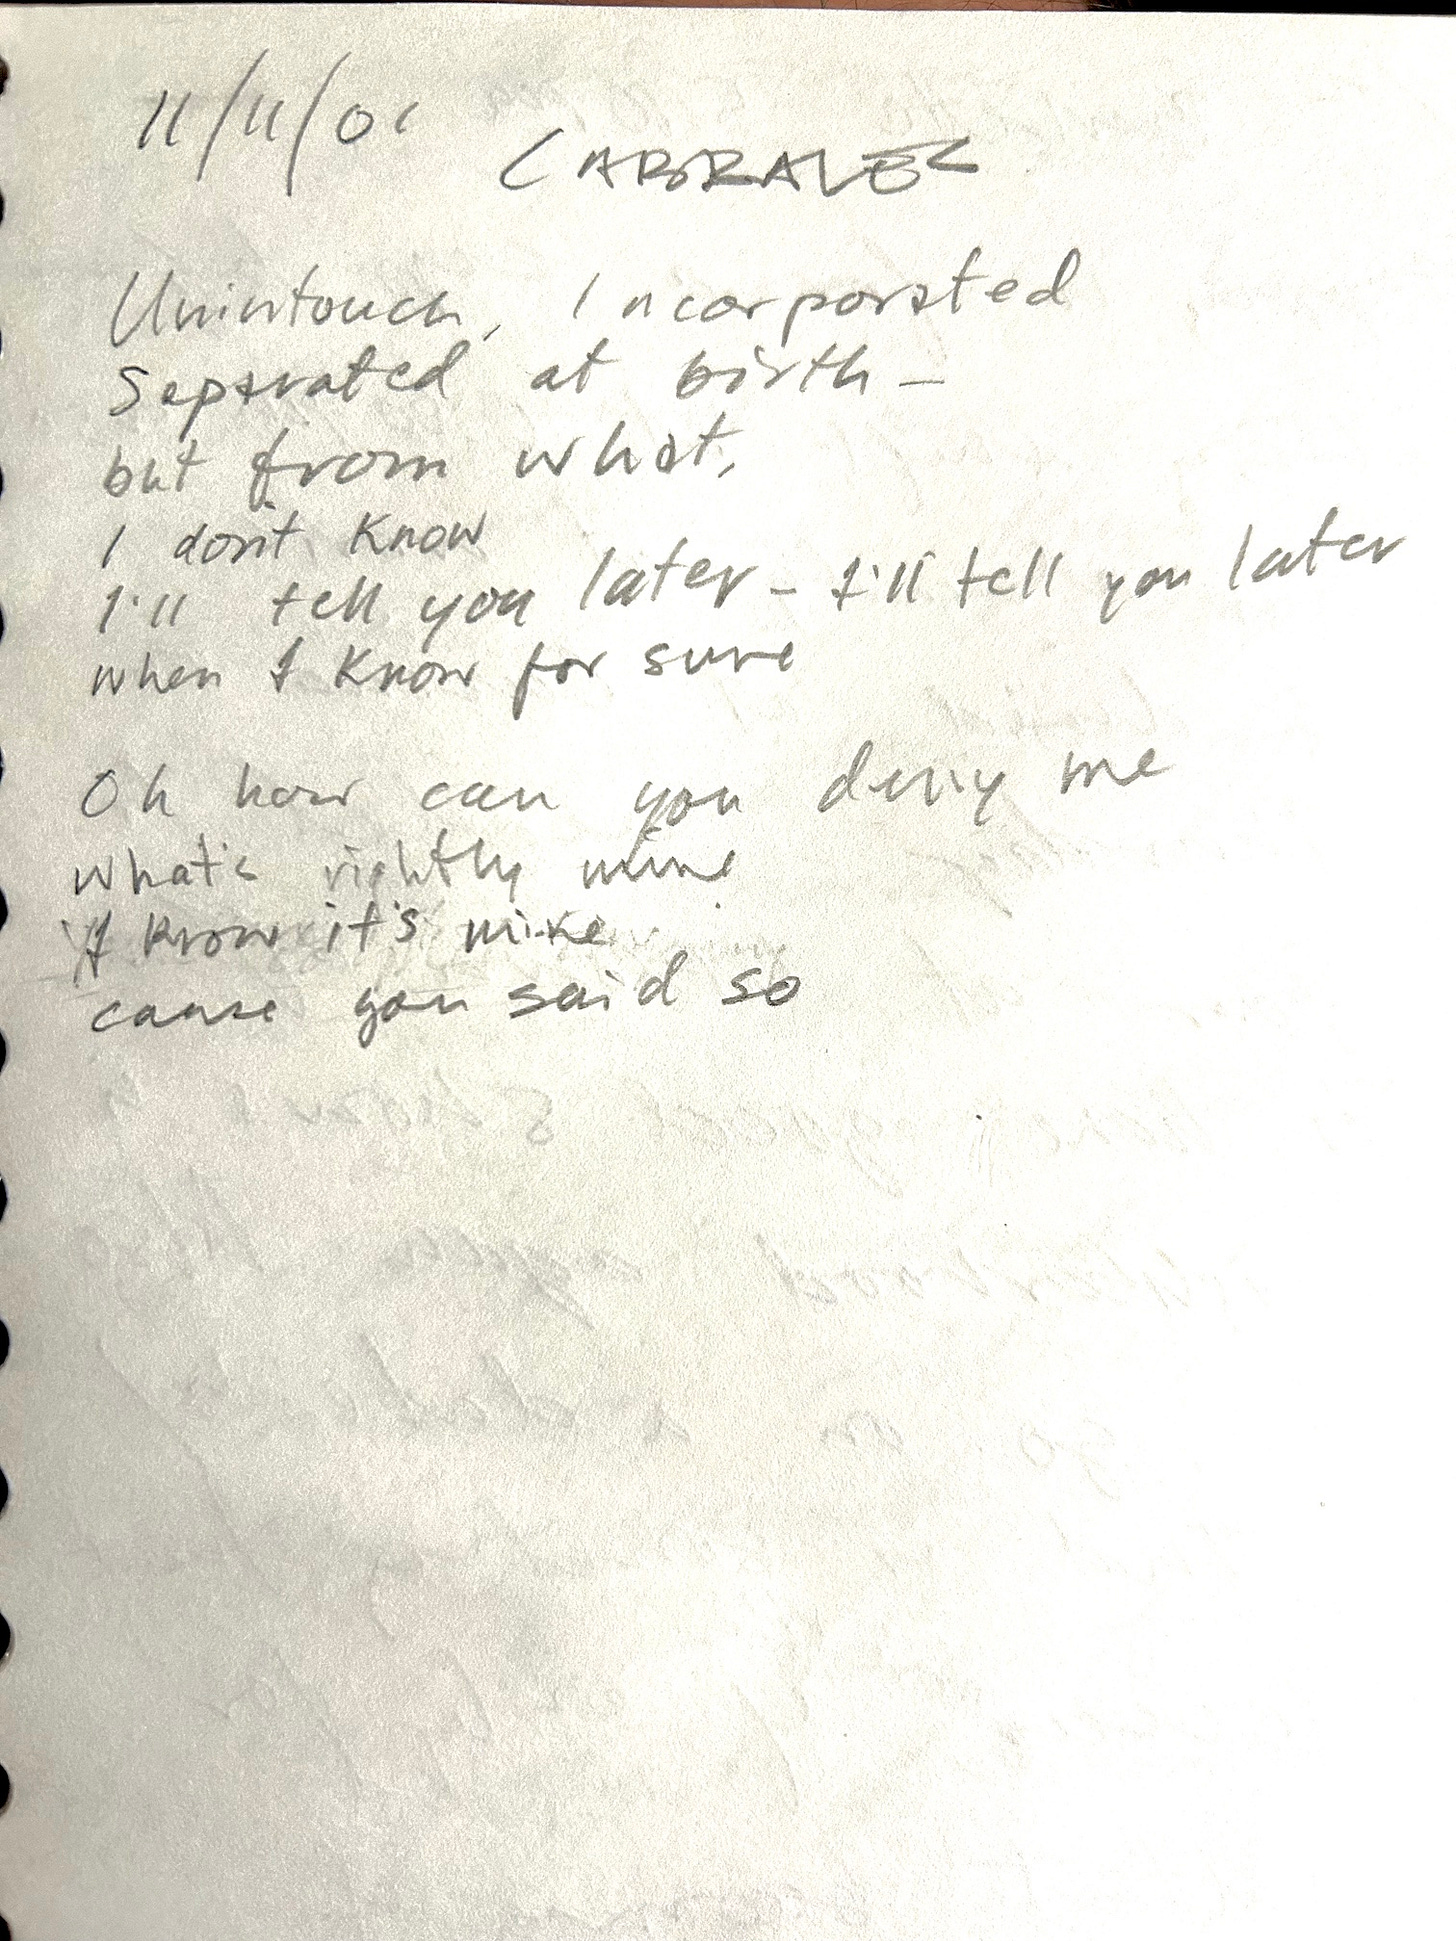 11/11/01
CABRALES
Unintouch, Incorporated
Separated at birth –
but from what,
I don't know
I'll tell you later – I'll tell you later
when I know for sure
Oh how can you deny me
what's rightly mine
I know it's mine
cause you said so